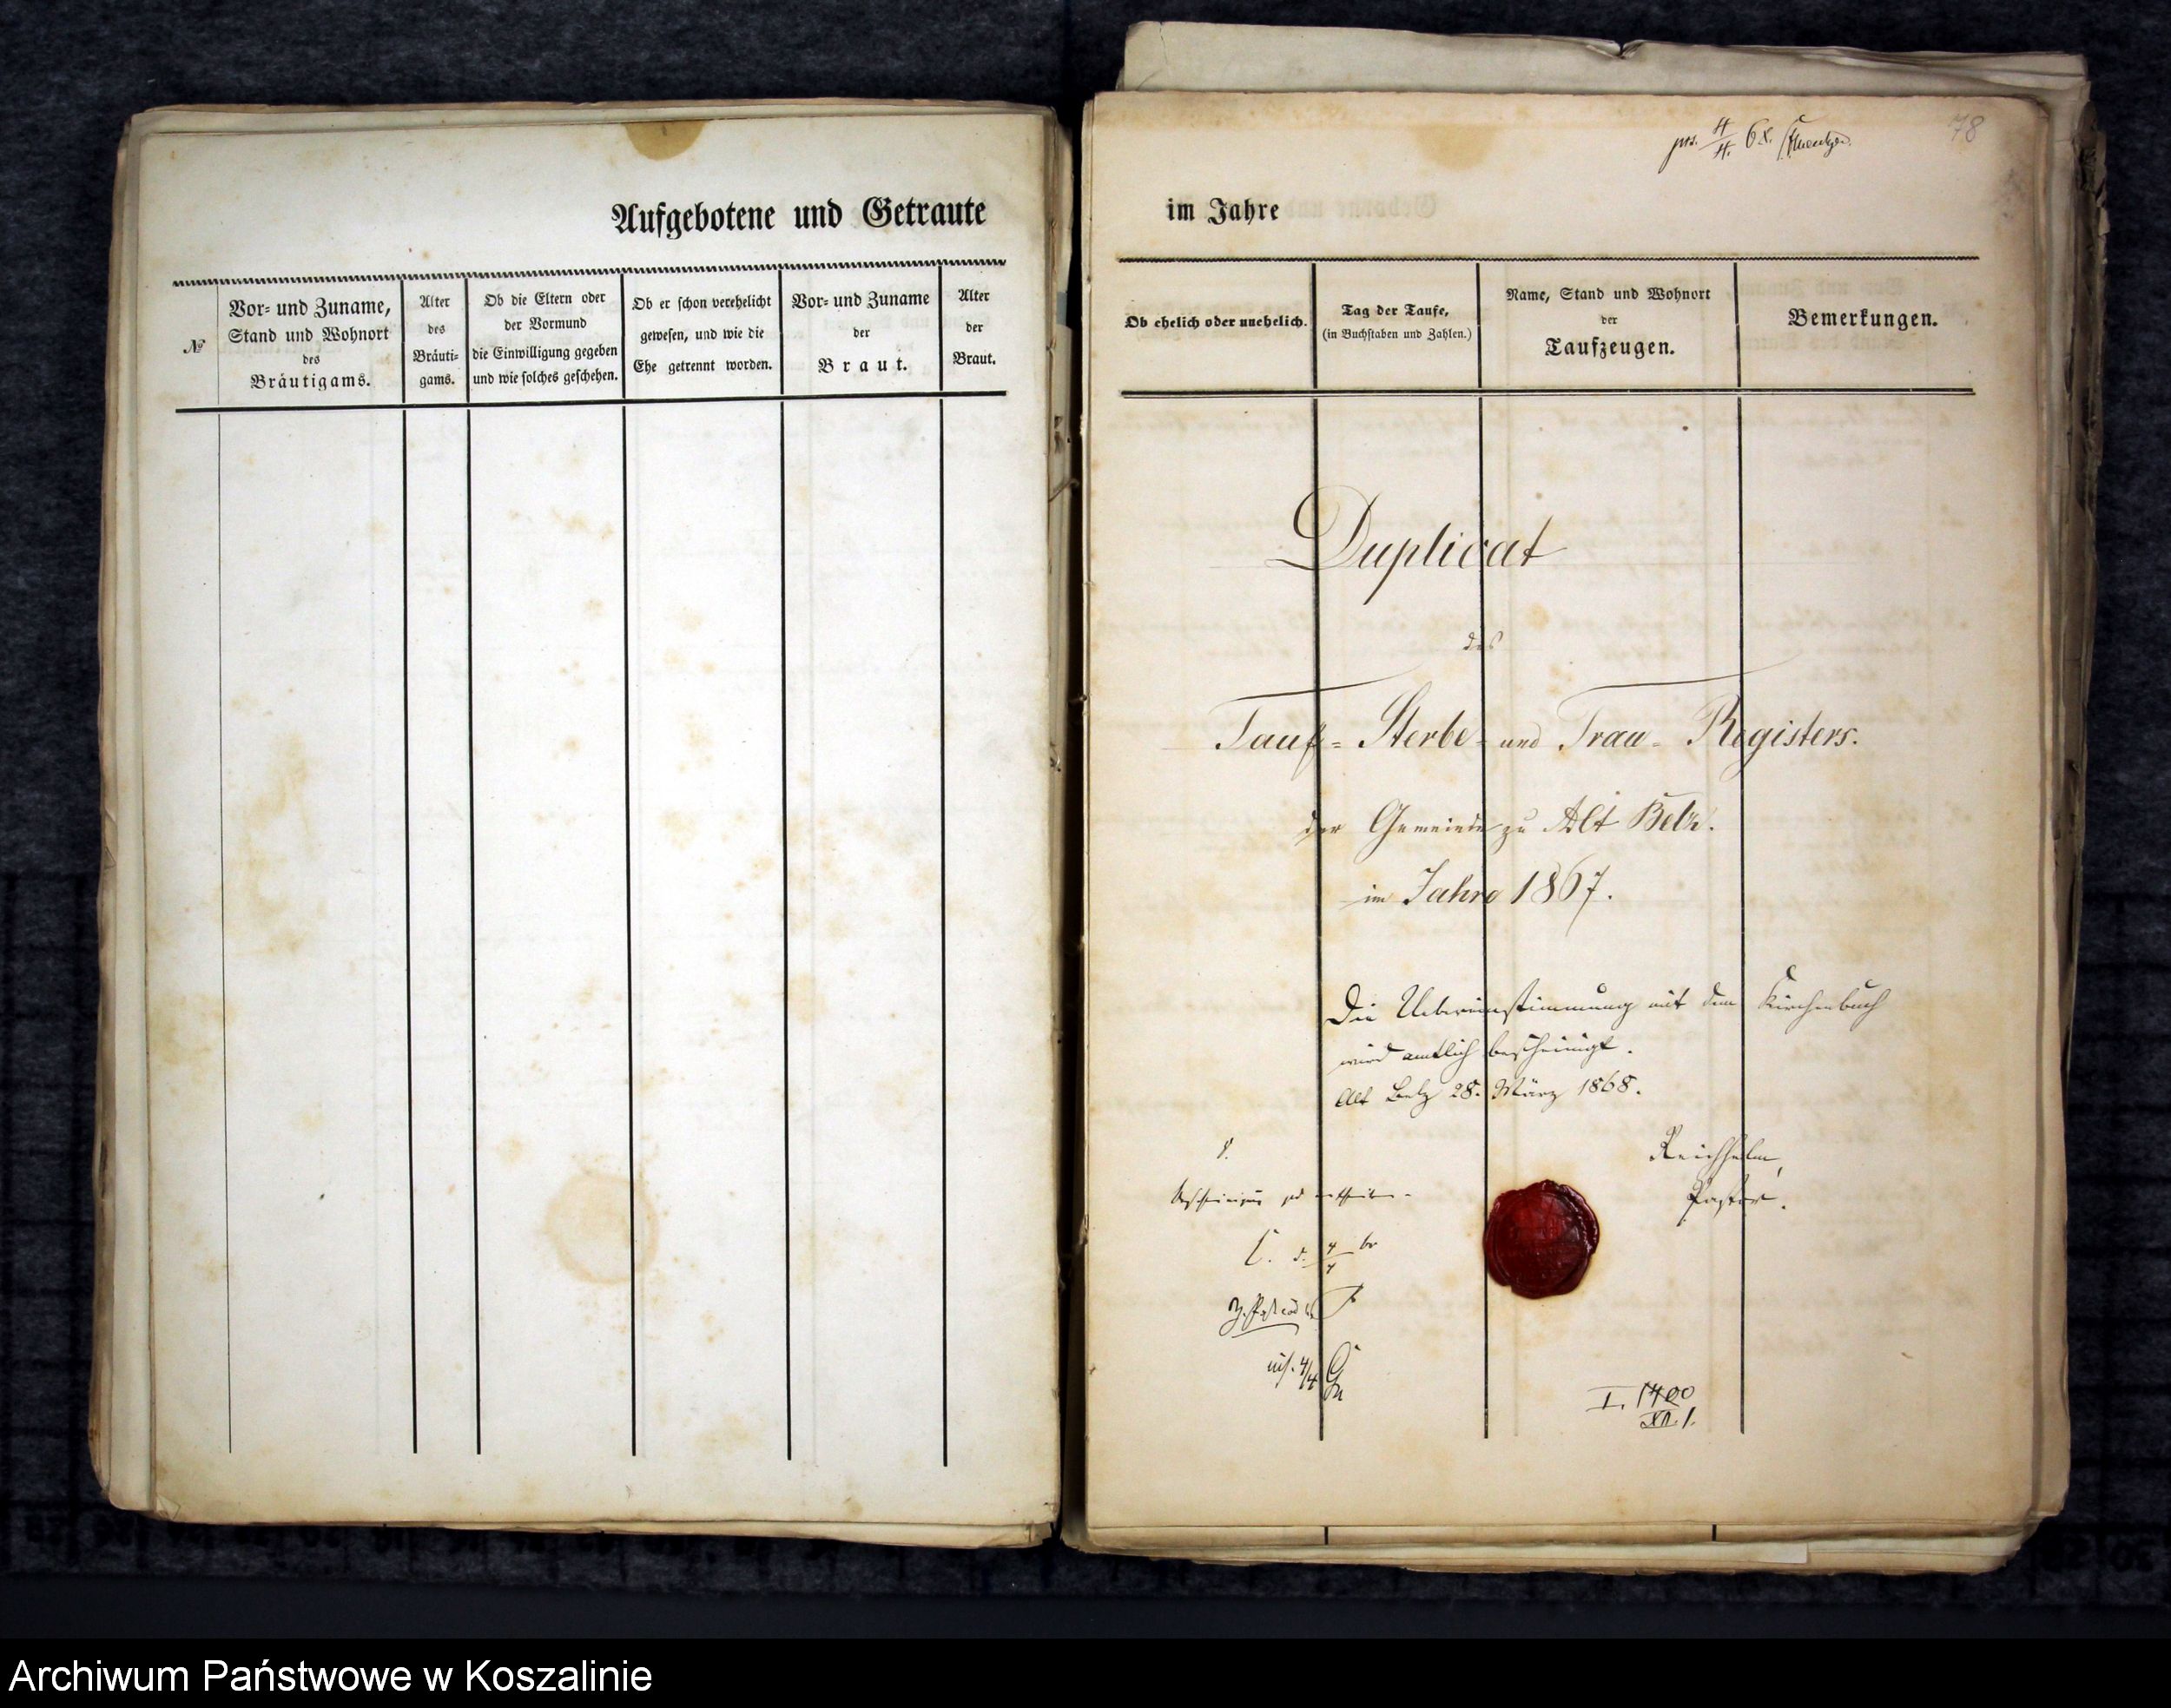 Aufgebotene und Getraute
№
Vor- und Zuname,
Stand und Wohnort
des
Bräutigams.
Alter
des
Bräuti-
gams.
Ob die Eltern oder
der Vormund
die Einwilligung gegeben
und wie solches geschehen.
Ob er schon verehelicht
gewesen, und wie die
Ehe getrennt worden.
Vor- und Zuname
der
Braut.
Alter
der
Braut.
78
prs. 4/4. 68.
im Jahre
Ob ehelich oder unehelich.
Tag der Taufe,
(in Buchstaben und Zahlen.)
Name, Stand und Wohnort
der
Taufzeugen.
Bemerkungen.
Duplicat
des
Tauf- Sterbe- und Trau- Registers.
der Gemeinde zu Alt Belz.
im Jahre 1867.
Die Uebereinstimmung mit dem Kirchenbuch
wird amtlich bescheinigt.
Alt Belz 28. März 1868.
Reichhelm,
Pastor.
I. 1400
XII. 1.
Archiwum Państwowe w Koszalinie